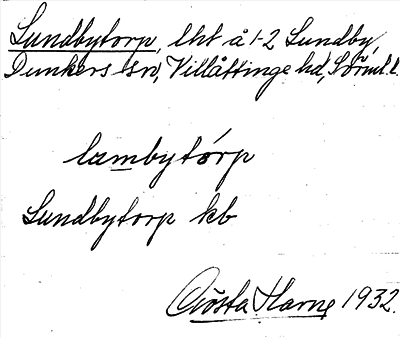 Lundbytorp, lht å 1-2 Lundby,
Dunkers sn, Villåttinge hd, Söml. l.
lambytórp
Lundbytorp kb
Gösta Harne 1932.